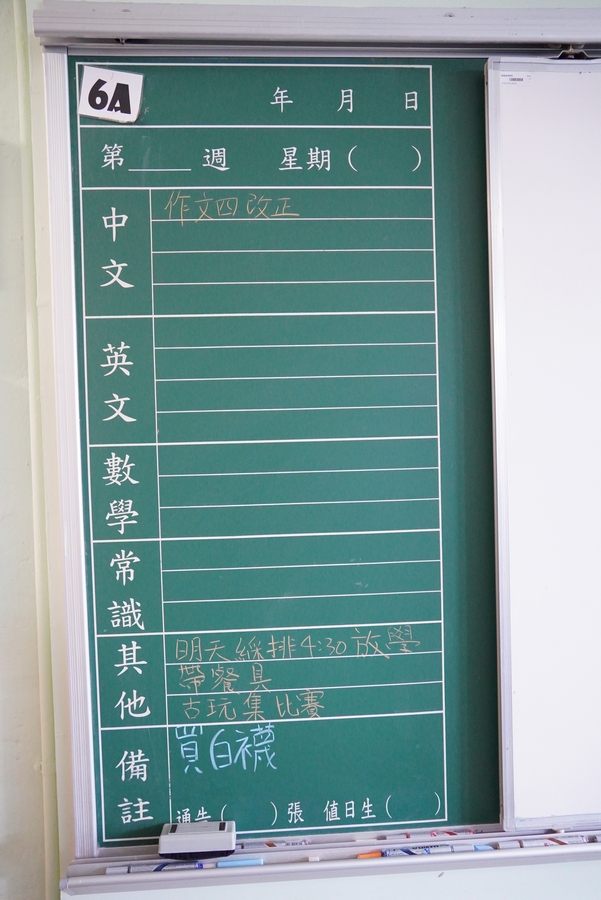 6A
年 月 日
第____週 星期( )
中文
作文四改正
英文
數學
常識
其他
明天綵排4:30放學
帶餐具
古玩集比賽
備註
買白襪
通告( )張 值日生( )